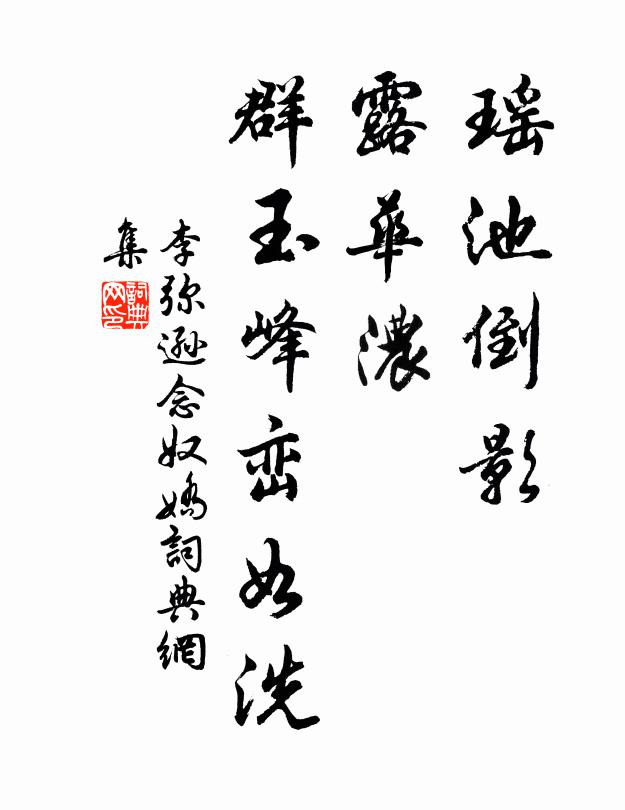 瑶池倒影
露華濃
群玉峰峦如洗
李弥遜念奴嬌詞典網
集
詞典
网印